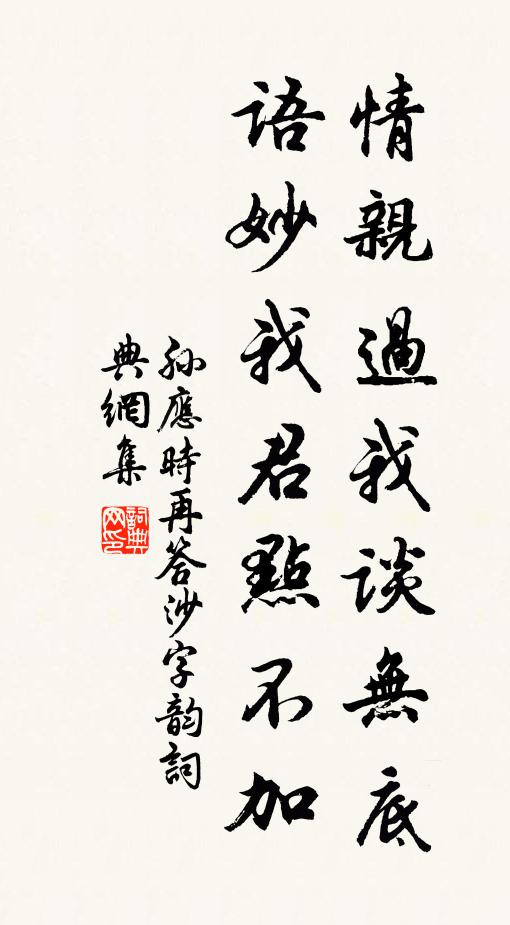 情親過我談無底
語妙我君點不加
孫應時再答沙字韵詞
典網集
詞典
网印